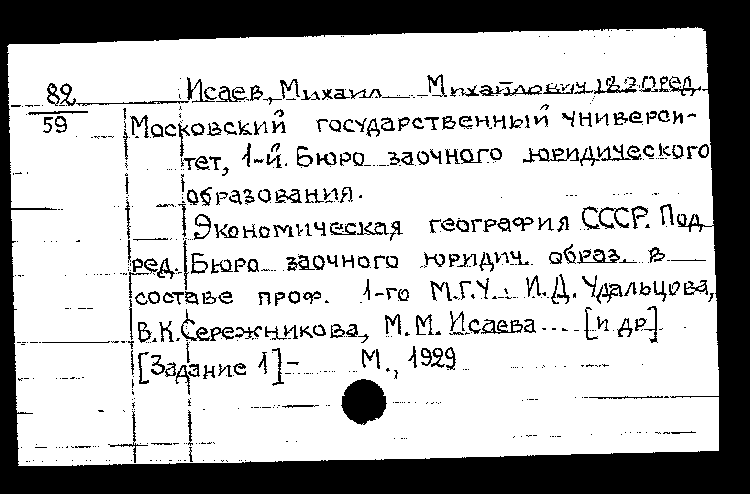 82
59
Исаев, Михаил Михайлович ред.
Московский государственный универси-
тет, 1-й. Бюро заочного юридического
образования.
Экономическая география СССР. Под
ред. Бюро заочного юридич. образ. в
составе проф. 1-го М.Г.У.: И.Д. Удальцова,
В.К. Сережникова, М.М. Исаева ... [и др]
[Задание 1]- М., 1929